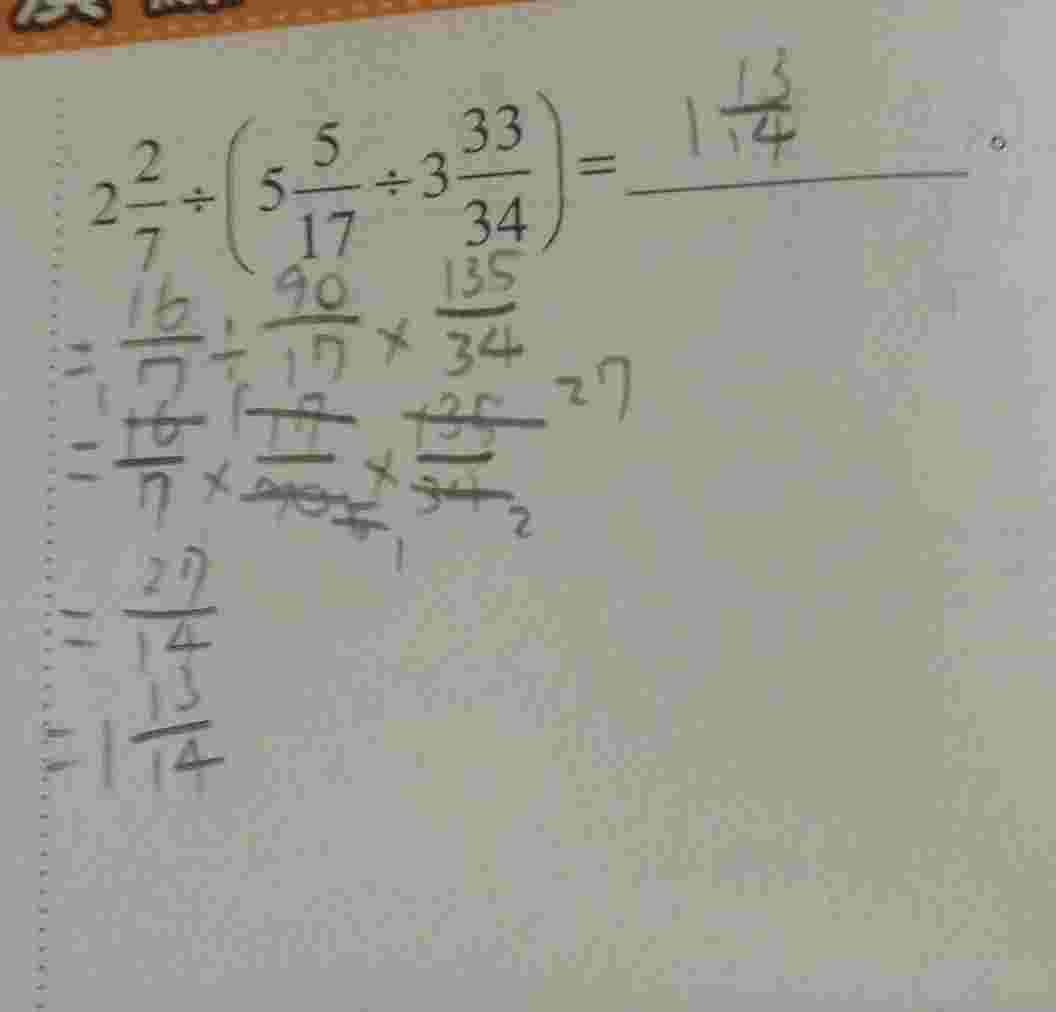 2 2/7 ÷ (5 5/17 ÷ 3 33/34) = 1 13/14 。
= 16/7 ÷ 90/17 × 135/34
= 16/7 × 17/90 × 135/34 1 1 27 5 1 2
= 27/14
= 1 13/14